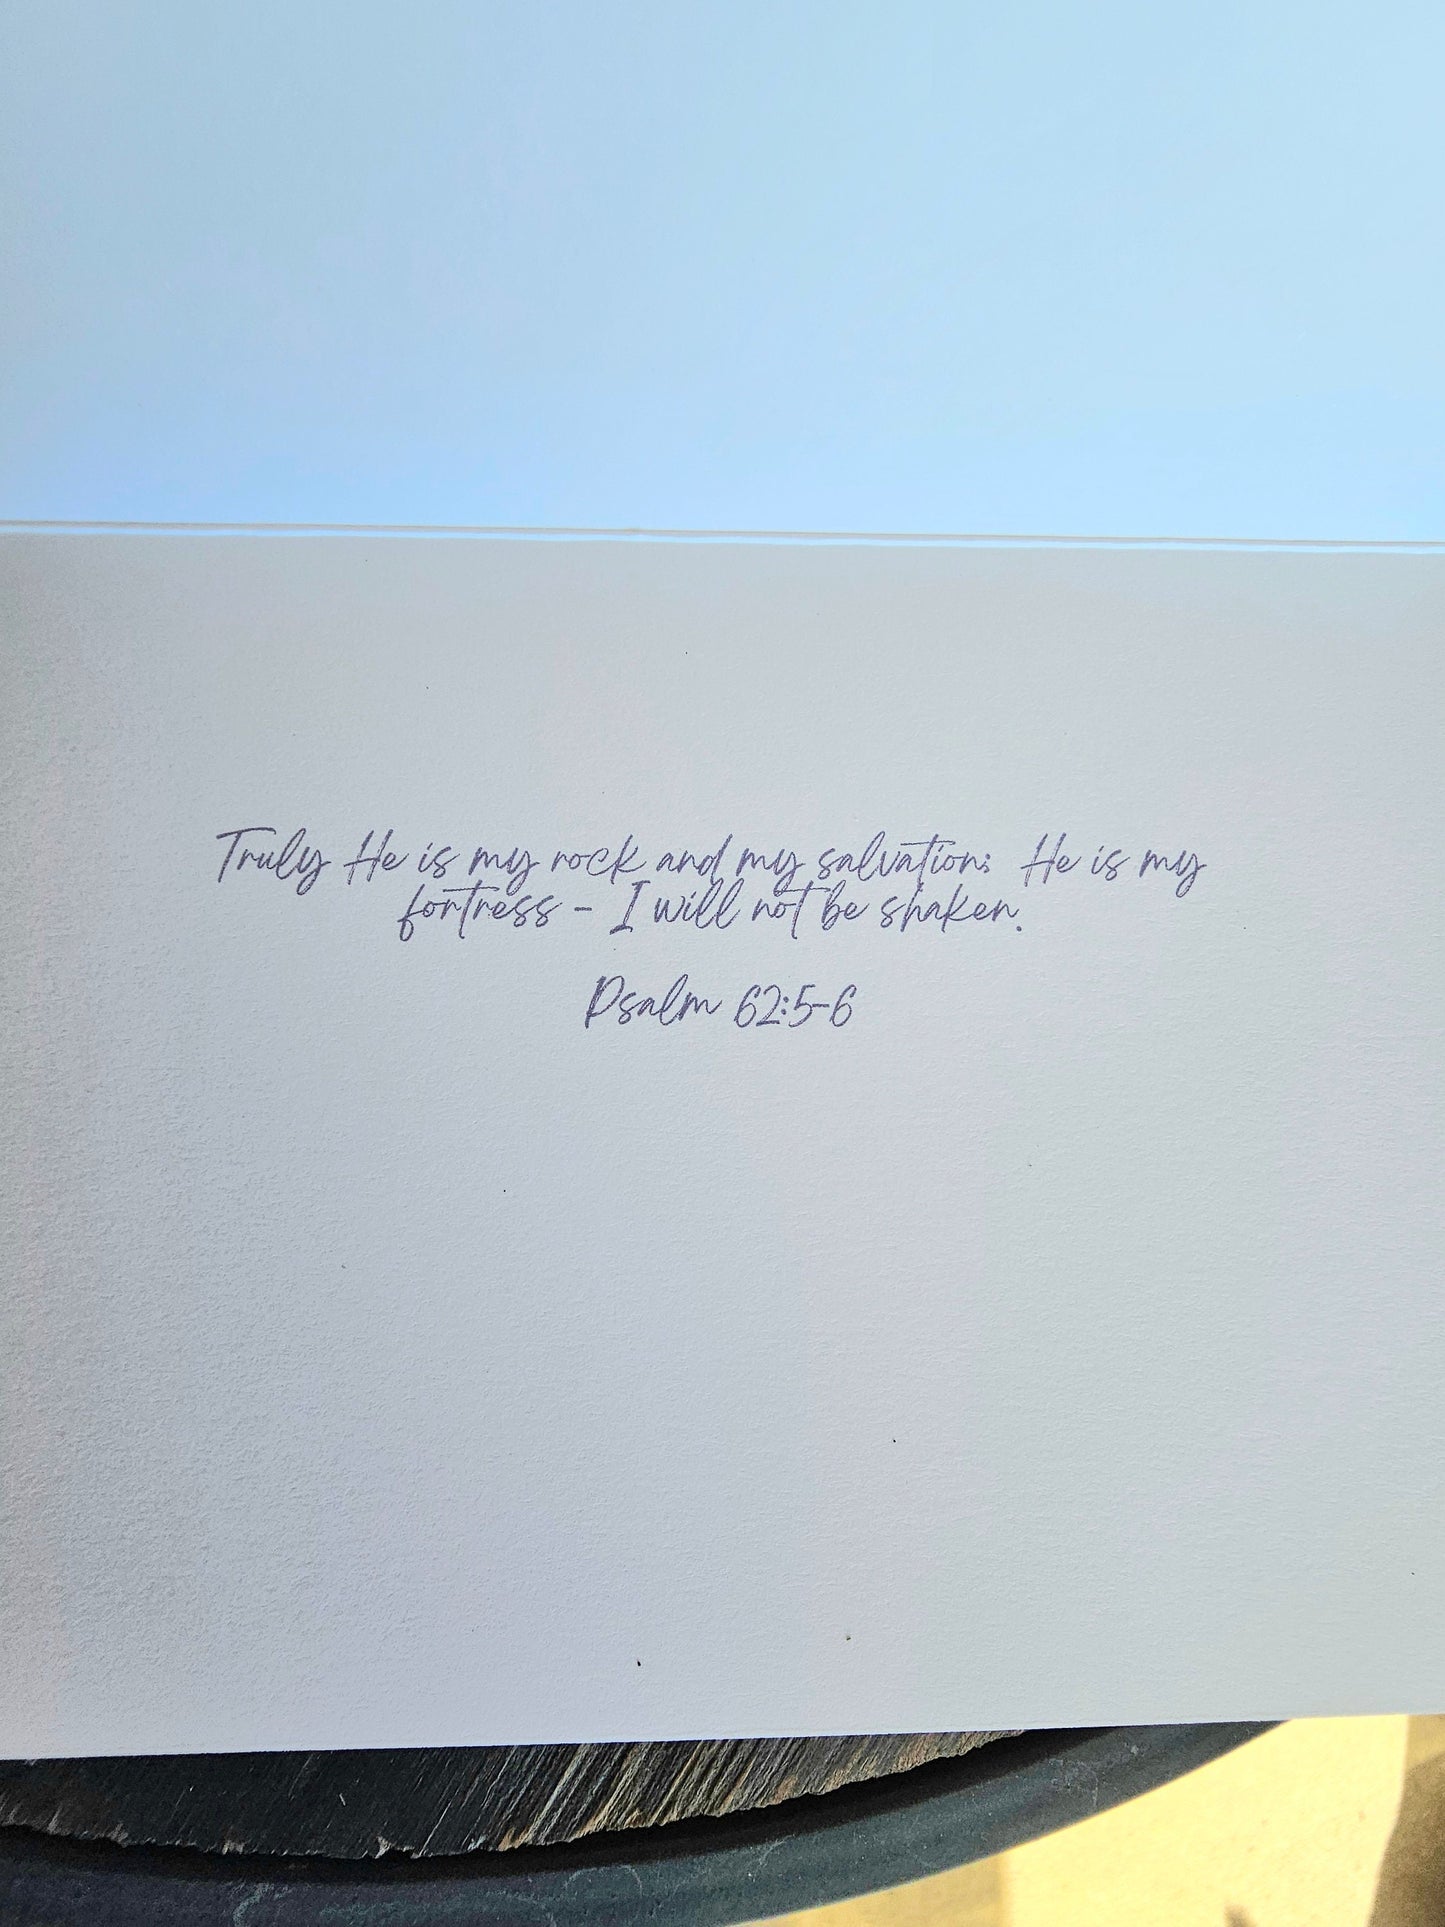 Truly He is my rock and my salvation; He is my
fortress - I will not be shaken.
Psalm 62:5-6